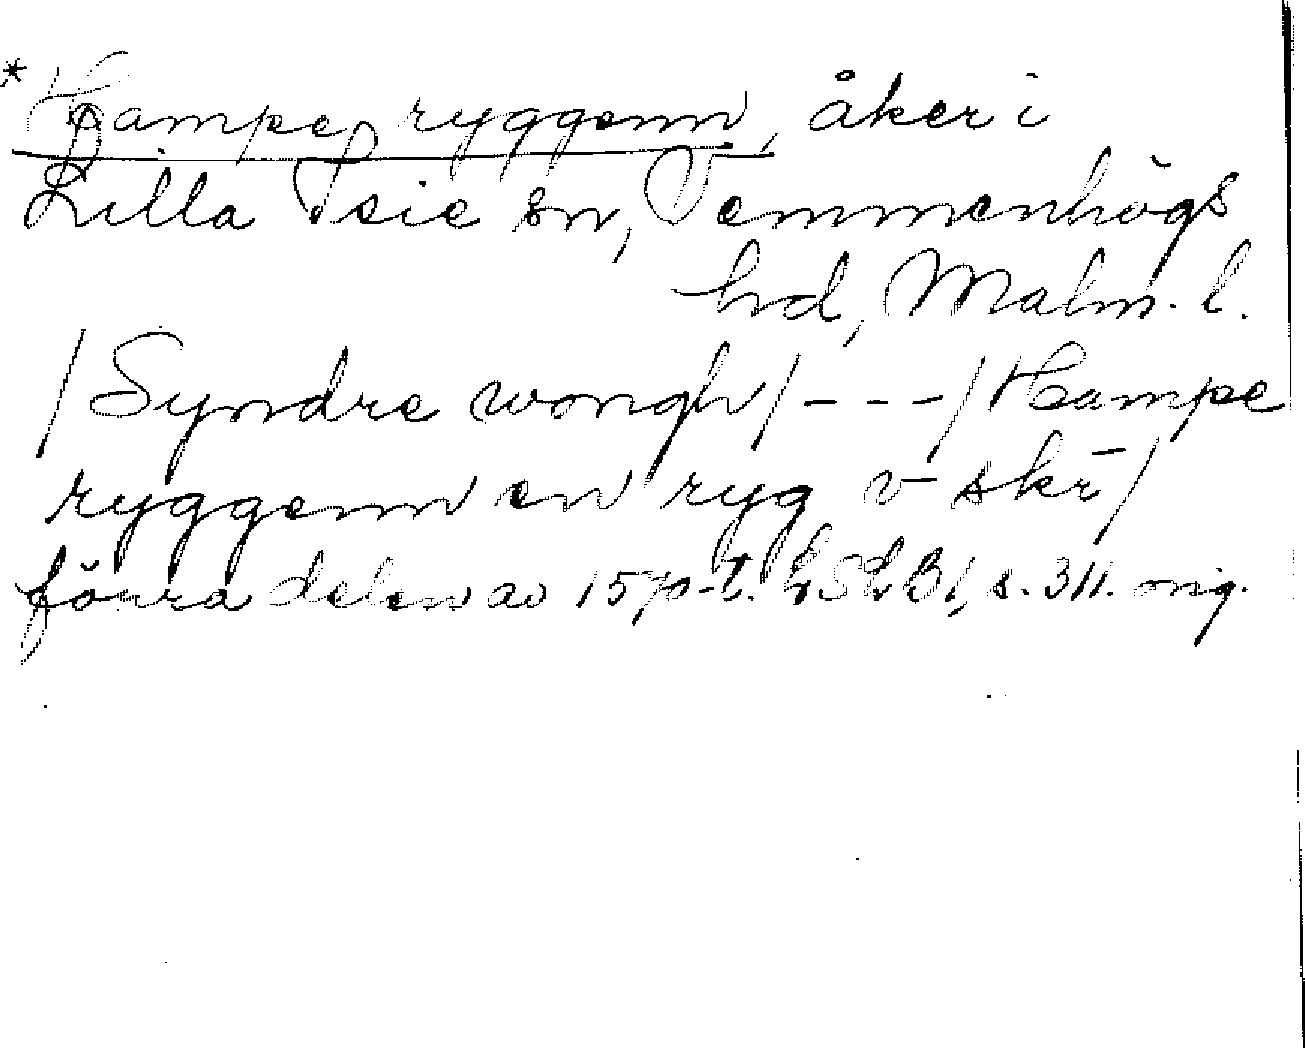 *Hampe ryggenn, åker i
Lilla Isie sn, Vemmenhögs
hd, Malm. l.
/Syndre wongh/ - - - /Hampe
ryggenn en ryg v skr̄/
förra delen av 1570-t. LSLB1, s. 311. orig.